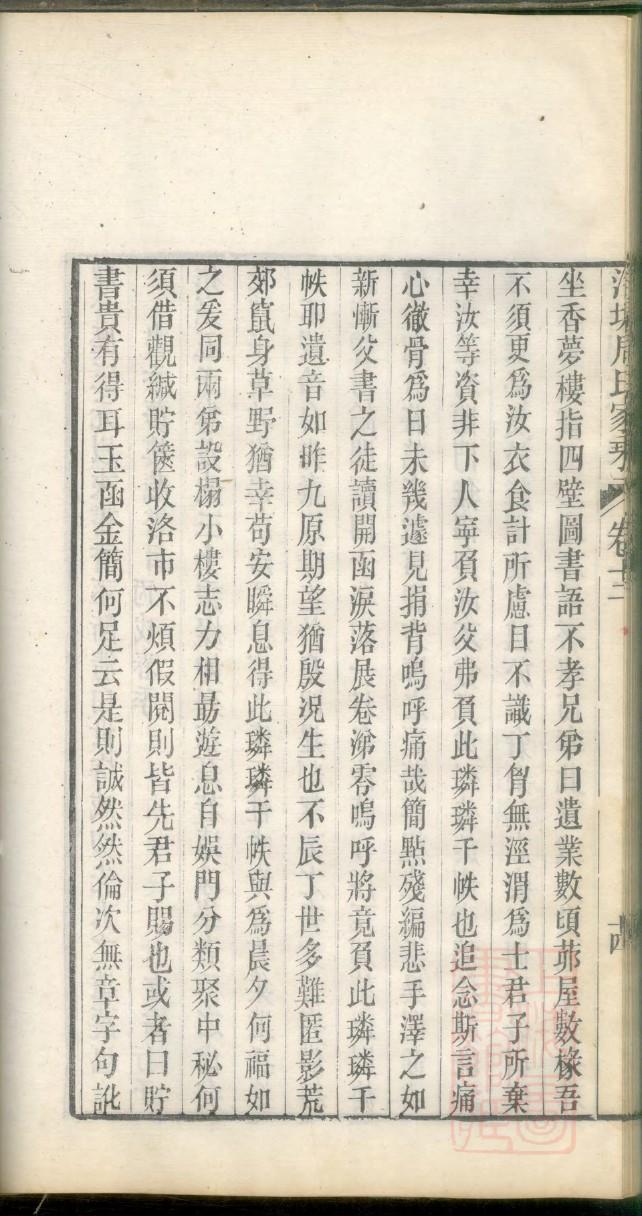 周氏家𣏌 卷十二 十四
坐香夢樓指四壁圖書語不孝兄弟曰遺業數頃茆屋數椽吾
不須更爲汝衣食計所慮目不識丁胷無涇渭爲士君子所棄
幸汝等資非下人寧負汝父弗負此璘璘千帙也追念斯言痛
心徹骨爲日未幾遽見捐背嗚呼痛哉簡點殘編悲手澤之如
新慚父書之徒讀開函淚落展卷涕零嗚呼將竟負此璘璘千
帙耶遺音如昨九原期望猶殷况生也不辰丁世多難匿影荒
郊竄身草野猶幸苟安瞬息得此璘璘千帙與爲晨夕何福如
之爰同兩弟設榻小樓志力相勗遊息自娛門分類聚中秘何
須借觀緘貯篋收洛市不煩假閱則皆先君子賜也或者曰貯
書貴有得耳玉函金簡何足云是則誠然然倫次無章字句訛